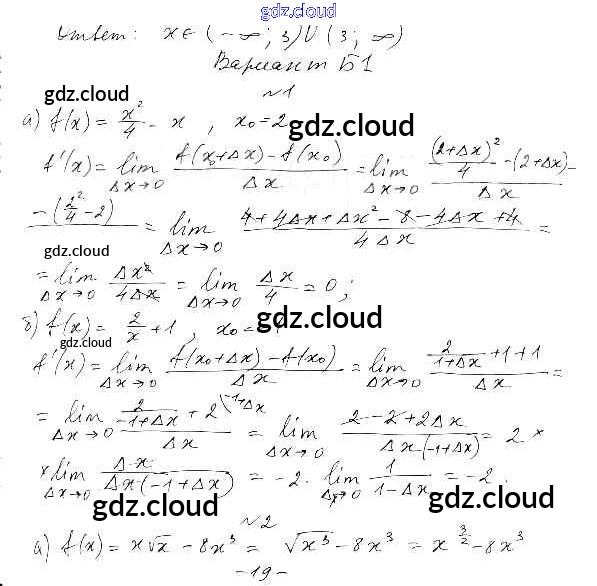 gdz.cloud
Ответ: x ∈ (-∞; 3) U (3; ∞)
Вариант Б1
№1
gdz.cloud
а) f(x) = x²/4 - x , x₀ = 2
gdz.cloud
f'(x) = lim Δx→0 (f(x₀+Δx) - f(x₀))/Δx = lim Δx→0 ((2+Δx)²/4 - (2+Δx) -
- (2²/4 - 2))/Δx = lim Δx→0 (4+4Δx+Δx² - 8 - 4Δx + 4)/(4Δx) =
gdz.cloud
= lim Δx→0 Δx²/(4Δx) = lim Δx→0 Δx/4 = 0;
gdz.cloud
б) f(x) = 2/x + 1 , x₀ =
gdz.cloud
f'(x) = lim Δx→0 (f(x₀+Δx) - f(x₀))/Δx = lim Δx→0 (2/(1+Δx) + 1 + 1)/Δx =
= lim Δx→0 (2/(-1+Δx) + 2 \-1+Δx)/Δx = lim Δx→0 (2 - 2 + 2Δx)/(Δx(-1+Δx)) = 2 ×
× lim Δx→0 Δx/(Δx(-1+Δx)) = -2 · lim Δx→0 1/(1-Δx) = -2.
gdz.cloud
gdz.cloud
№2
а) f(x) = x√x - 8x³ = √x³ - 8x³ = x^(3/2) - 8x³
-19-